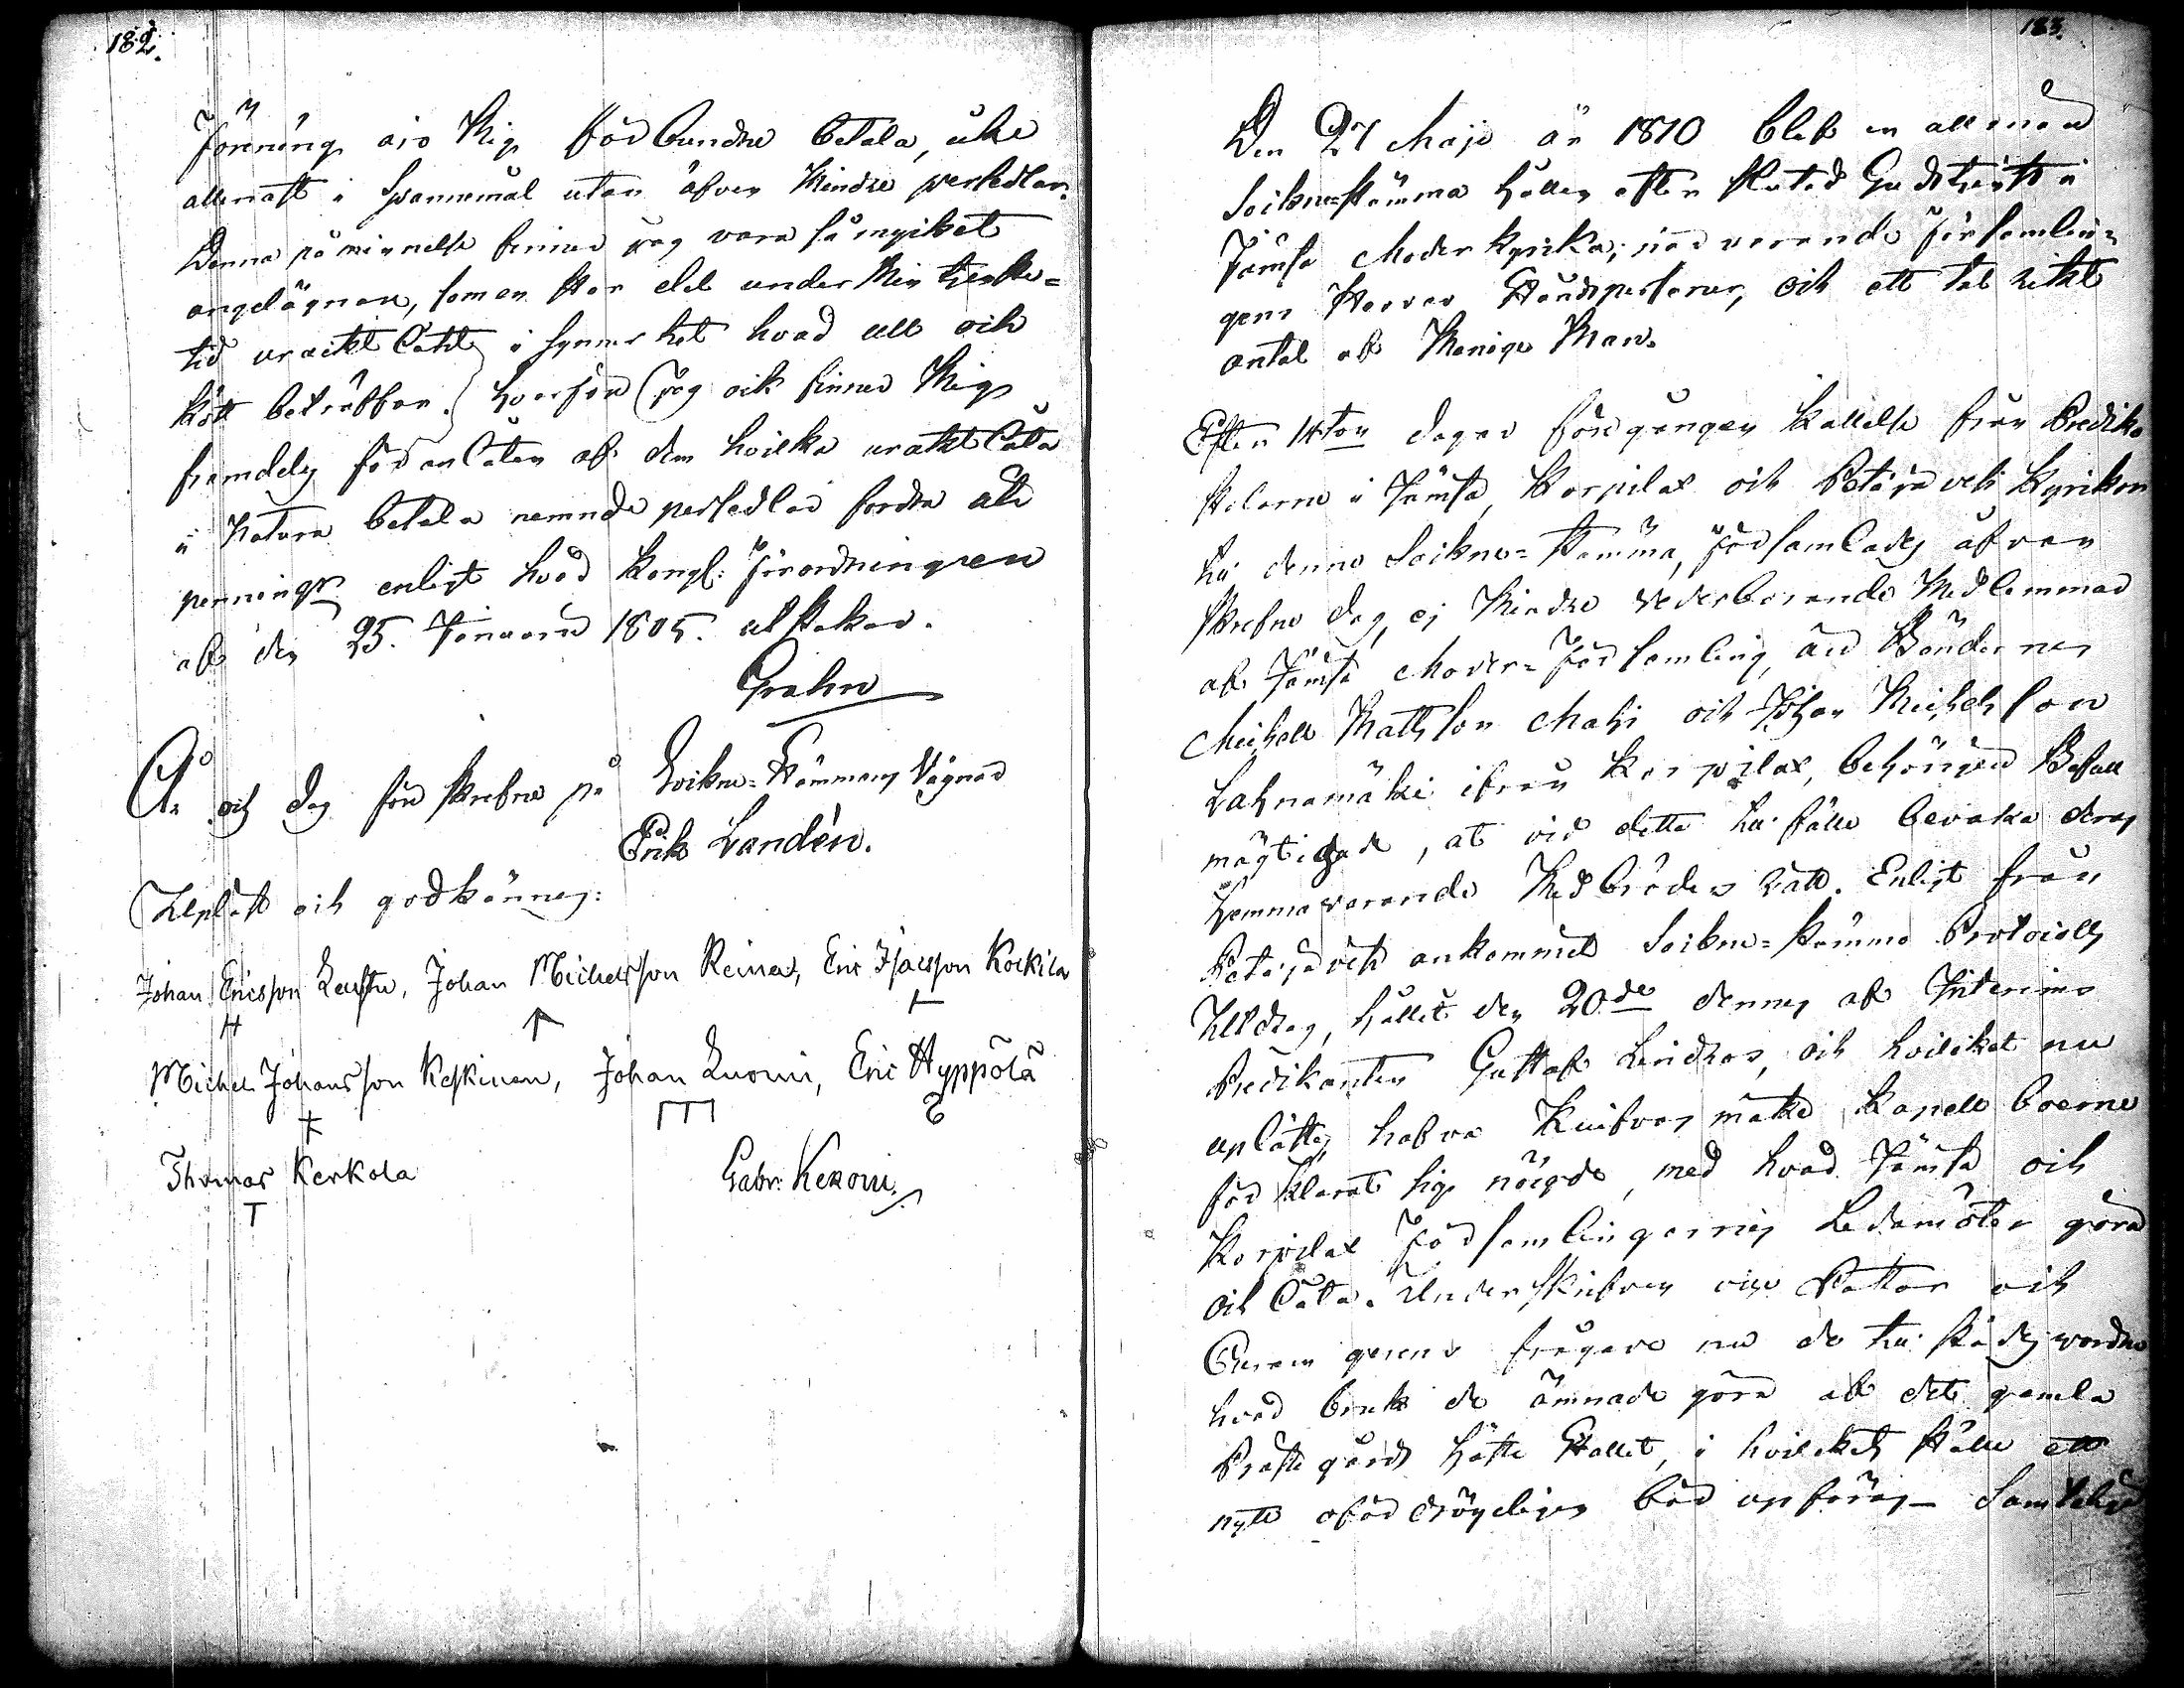 182.
förening äro mig förbundne betala, icke
allenast i Spannemål utan äfven mindre persedlar.
Denna påminnelse finner jag vara så mycket
angelägnare, som en stor del under min tjenste=
tid uracktlåtit i synnerhet hvad ull och
kött beträffar. hvarföre jag ock finner mig
framdeles föranlåten af dem hvilka uraktlåta
i Natura betala nemnde persedlar fordra alt
penningar enligt hvad Kongl: Förordningen
af den 25. Januarii 1805. utstakar.
Grahn
År och dag för skrefne på Sockne=Stämmans Vägnar
Erik Landén.
Upläst och godkännes:
Johan Ericsson Leustu, Johan Michelsson Reinas, Eric Isacsson Kockila
Michel Johansson Keskinen, Johan Luomi, Eric Hyppölä
Thomas Kerkola
Gabr: Keroni
183.
Den 27 Maji år 1810 blef en allmän
Sockne=stämma hållen efter slutad Gudstjenst i
Jämsä Moder kyrka; närvarande församlin=
gens Herrar Ståndspersoner, och ett tal rikt
antal af Menige Man.
Efter 14ton dagar föregången kallelse från Prediko
stolarne i Jämsä, Korpilax och Petäjävesi Kyrikor
til denne Sockne=stämma, församlades äfven
skrefne dag, ej mindre vederbörande Medlemmar
af Jämsä Moder=församling, än Bönderne
Michell Mattsson Mahi och Johan Michelsson
Lahnamäki ifrån Korpilax, behörigen Befull
mägtigade, at vid detta tilfälle bevaka deras
hemmavarande Medbröders rätt. Enligt från
Petäjävesi ankommit Sockne=stämmo Protocolls
Utdrag, hållit den 20de dennes af Interims
Predikanten Gustaf Lindros, och hvilcket nu
uplästes, hafva Kapell boerne
förklarat sig nögde, med hvad Jämsä och
Korpilax församlingarnes Ledamöter göra
och låta. Underskrifven vice Pastor och
frågade nu de tilstädes vordne
hvad bruk de ämnade göra af det gamla
Prästgårds Häste Stallet, i hvilckets ställe ett
nytt ofördröjeligen bör upföras – Samtelige